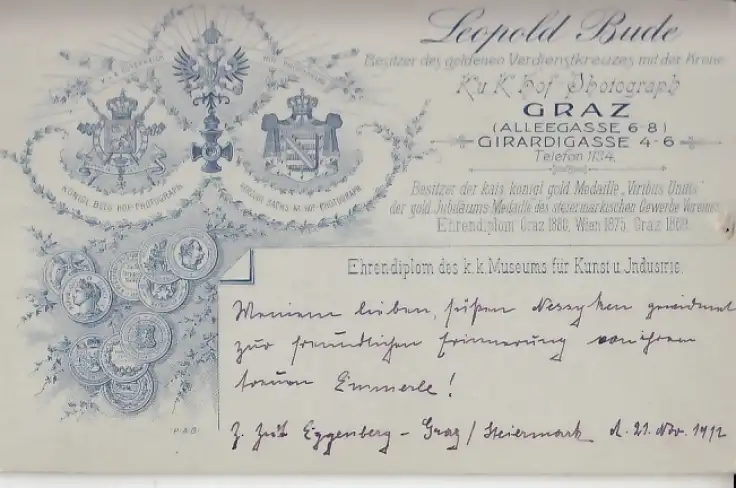 K. u. K. ÖSTERREICH. HOF-PHOTOGRAPH.
KÖNIGL. BELG. HOF-PHOTOGRAPH
HERZOGL. SACHS. M. HOF-PHOTOGRAPH.
Leopold Bude
Besitzer des goldenen Verdienstkreuzes mit der Krone
K u K Hof Photograph
GRAZ
(ALLEEGASSE 6-8)
GIRARDIGASSE 4-6
Telefon 1134.
Besitzer der kais. königl. gold. Medaille „Viribus Unitis"
der gold. Jubiläums-Medaille des steiermärkischen Gewerbe Vereines
Ehrendiplom Graz 1880, Wien 1875, Graz 1869.
Ehrendiplom des k.k. Museums für Kunst u. Jndustrie.
Meinem lieben, süßen gewidmet
zur freundlichen Erinnerung von ihrem
treuen Emmerle!
Z. Zeit Eggenberg - Graz / Steiermark d. 21. Nov. 1912